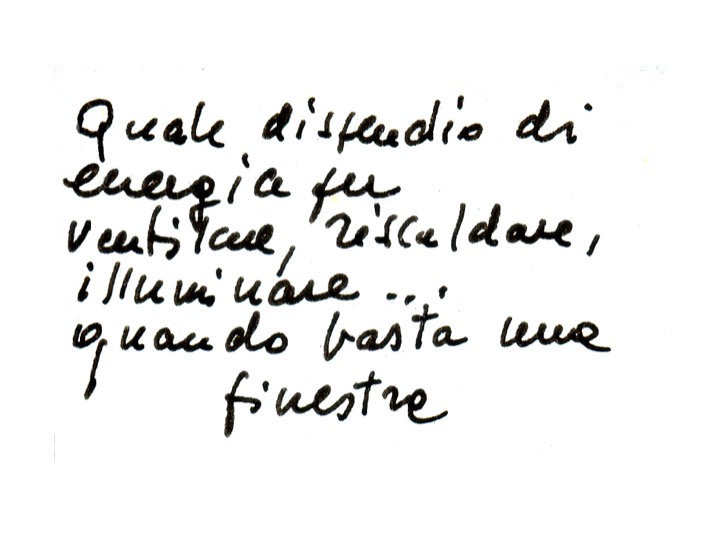 Quale dispendio di
energia per
ventilare, riscaldare,
illuminare ...
quando basta una
finestra